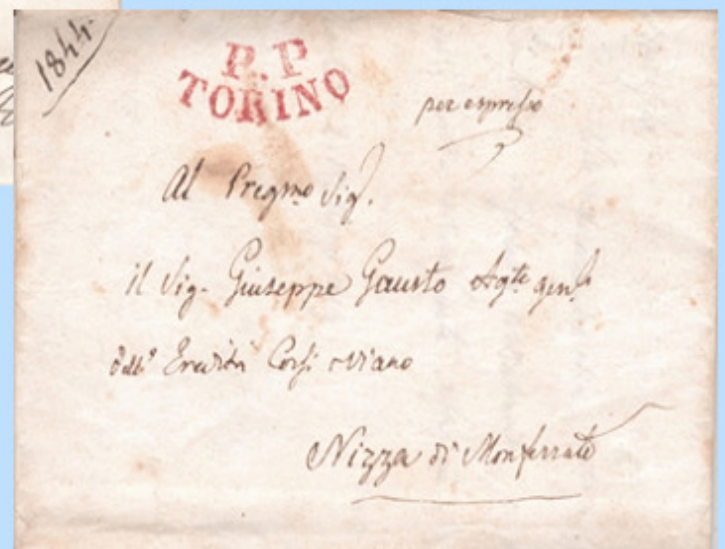 1844.
P.P
TORINO
per espresso
Al Pregmo Sigr.
il Sig. Giuseppe Gausto Agte genle
dell' Eredità Corsi Viano
Nizza di Monferrato